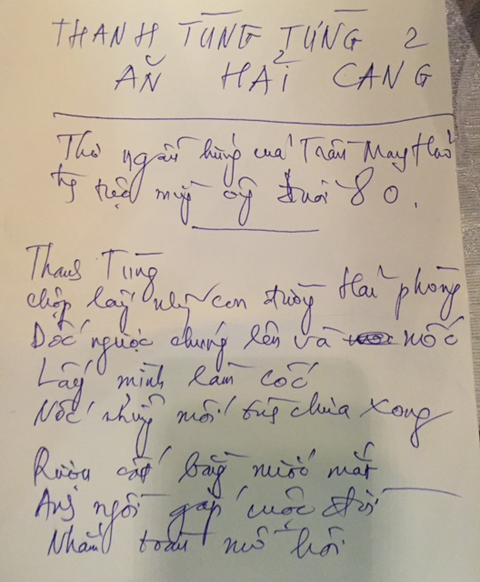 THANH TÙNG TỪNG 2
ĂN HẢI CẢNG
Thơ ngẫu hứng của Trần Mạnh Hảo
tuổi 80.
Thanh Tùng
chộp lấy những con đường Hải phòng
Dốc ngược chúng lên và nốc
Lấy mình làm cốc
Nốc những mối tình chưa xong
Rượu cất bằng nước mắt
Anh ngồi gắp cuộc đời
Nhắm toàn mồ hôi